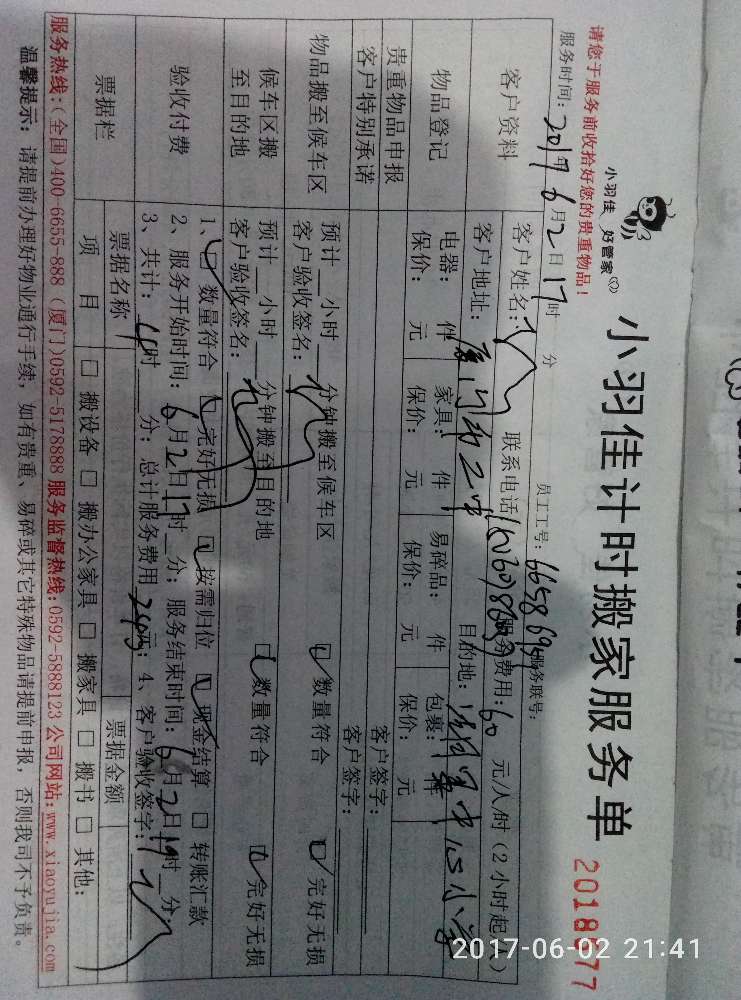 小羽佳 好管家
小羽佳计时搬家服务单
2018677
请您于服务前收拾好您的贵重物品！
员工工号： 服务联号：
服务时间：2017年6月2日17时 分
客户资料
客户姓名： 联系电话 服务费用：60 元/人/时（2小时起
客户地址： 目的地：
物品登记
电器： 件 家具： 件 易碎品： 件 包裹： 件
保价： 元 保价： 元 保价： 元 保价： 元
贵重物品申报 客户签字：
客户特别承诺 客户签字：
物品搬至候车区
预计__小时__分钟搬至候车区 数量符合 完好无损
客户验收签名：
候车区搬至目的地
预计__小时__分钟搬至目的地 数量符合 完好无损
客户验收签名：
验收付费
1、 数量符合 完好无损 按需归位 现金结算 转账汇款
2、服务开始时间：6月2日17时__分；服务结束时间：6月2日19时__分；
3、共计：4时__分；总计服务费用 240元；4、客户验收签字：
票据栏
票据名称 票据金额
项 目 □ 搬设备 □ 搬办公家具 □ 搬家具 □ 搬书 □ 其他：
服务热线：(全国)400-6655-888 (厦门)0592-5178888 服务监督热线：0592-5888123 公司网站：www.xiaoyujia.com
温馨提示：请提前办理好物业通行手续，如有贵重、易碎或其它特殊物品请提前申报，否则我司不予负责。
2017-06-02 21:41